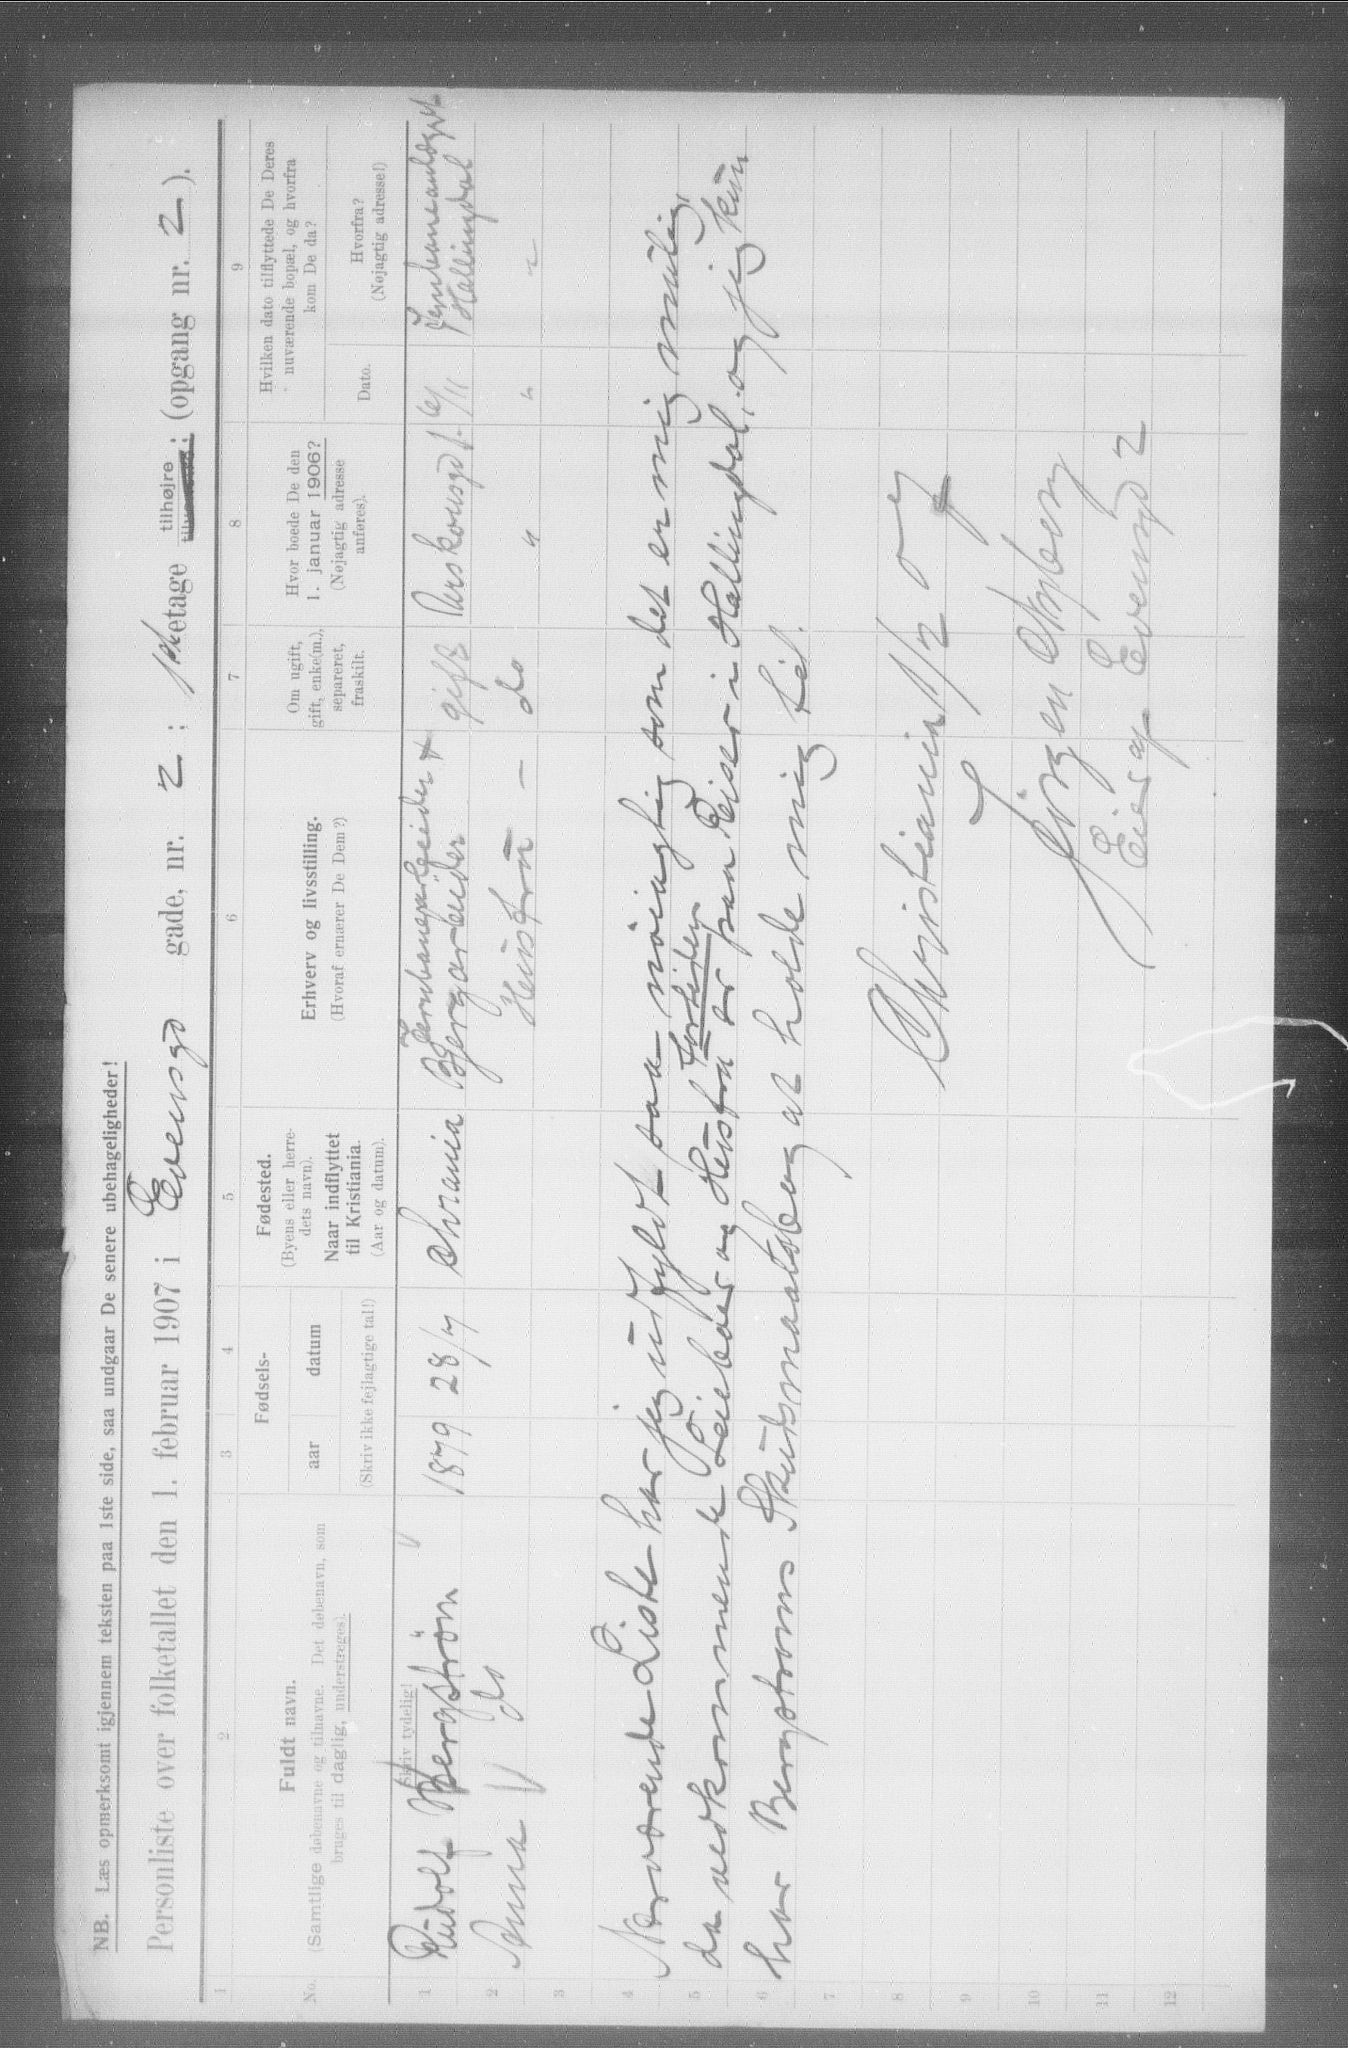 NB. Læs opmerksomt igjennem teksten paa 1ste side, saa undgaar De senere ubehageligheder!
Personliste over folketallet den 1. februar 1907 i Evensgd gade, nr. 2 ; 1ste etage tilhøjre ; (opgang nr. 2 ).
1 2 3 4 5 6 7 8 9
No.
Fuldt navn.
(Samtlige døbenavne og tilnavne. Det døbenavn, som
bruges til daglig, understreges).
Skriv tydelig!
Fødsels-
aar datum
(Skriv ikke fejlagtige tal!)
Fødested.
(Byens eller herre-
dets navn).
Naar indflyttet
til Kristiania.
(Aar og datum).
Erhverv og livsstilling.
(Hvoraf ernærer De Dem?)
Om ugift,
gift, enke(m.),
separeret,
fraskilt.
Hvor boede De den
1. januar 1906?
(Nøjagtig adresse
anføres).
Hvilken dato tilflyttede De Deres
nuværende bopæl, og hvorfra
kom De da?
Dato.
Hvorfra?
(Nøjagtig adresse!)
1 Rudolf Bergström 1879 28/7 Chrania Jernbanearbeider & Bjergarbeider gift 6/11 Jernbaneanlægget Hallingdal
2 Anna do Hustru – do " " "
3
4 Nærværende Liste har jeg udfyldt saa nöiagtig som det er mig mulig,
5 da vedkommende Leieboer og Hustru for tiden er paa Reiser i Hallingdal, og jeg kun
6 har Bergstroms Skudsmaalsbog at holde mig til.
7
8 Christiania 1/2 07
9
10 Jörgen
11 Eier af Evensgd 2
12